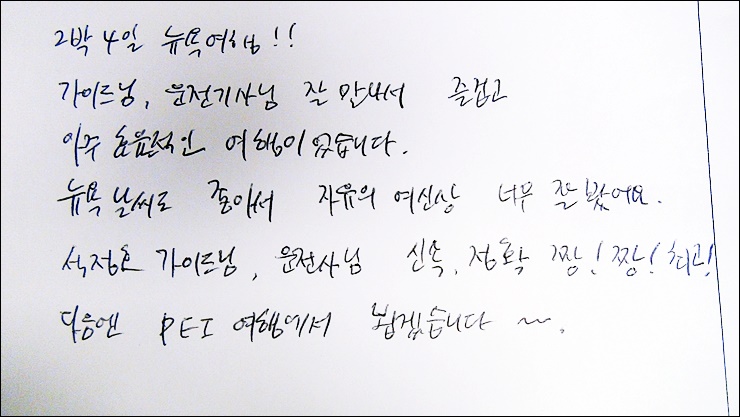 2박 4일 뉴욕여행!!
가이드님, 운전기사님 잘 만나서 즐겁고
아주 효율적인 여행이었습니다.
뉴욕 날씨도 좋아서 자유의 여신상 너무 잘 봤어요.
석정호 가이드님, 운전사님 신속, 정확 짱! 짱! 최고!
다음엔 PEI 여행에서 뵙겠습니다 ~.